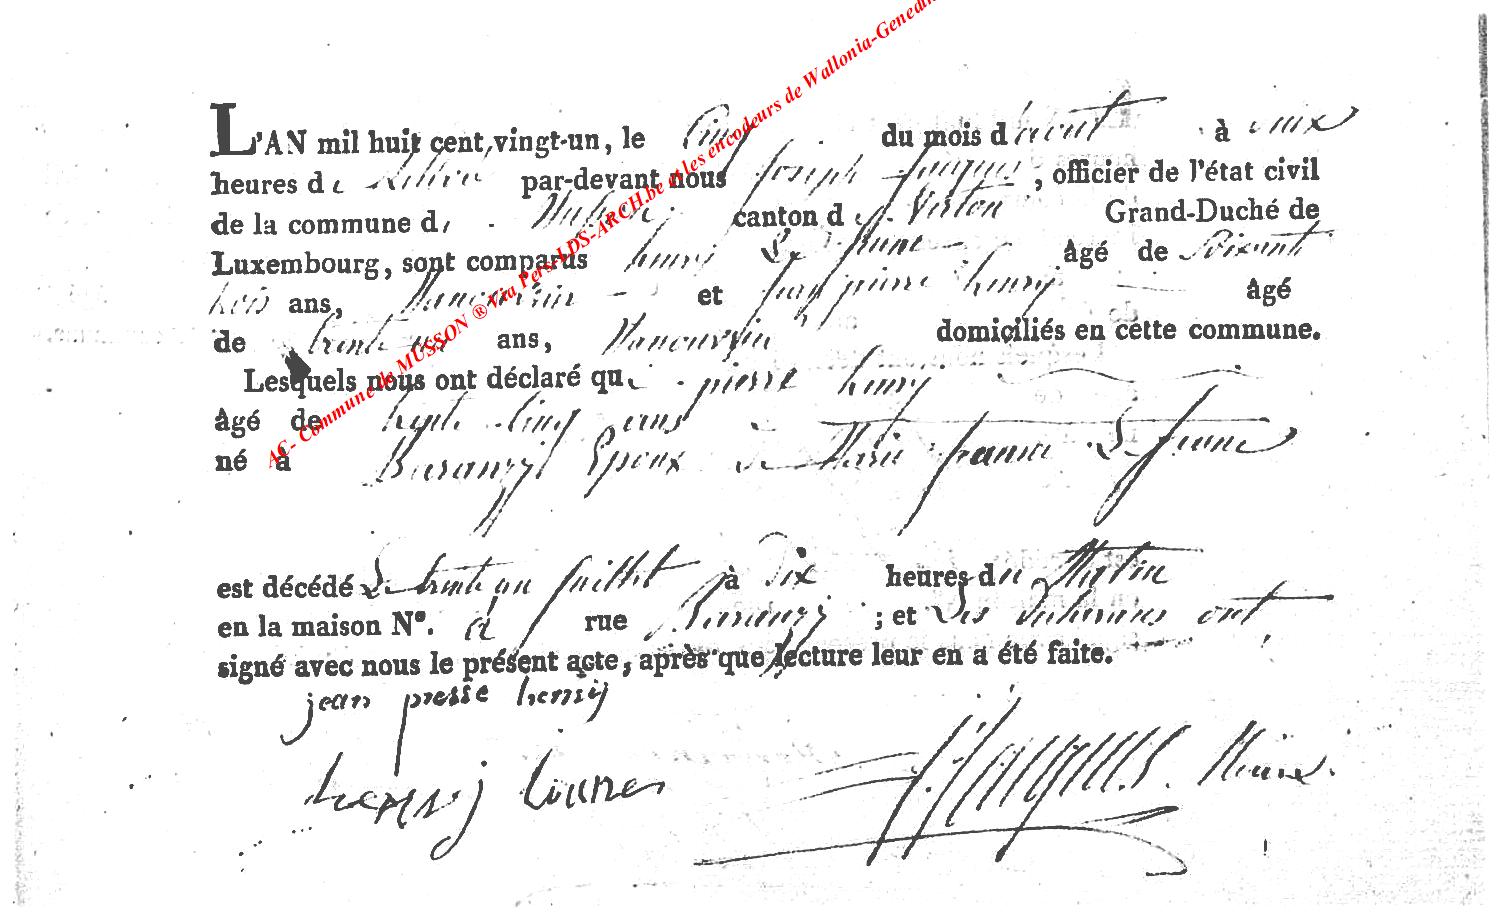 AC- Commune de MUSSON ® Via Pers-LDS-ARCH.be et les encodeurs de Wallonia-Genedi
L'AN mil huit cent vingt-un, le Cinq du mois d'aout à
heures de par-devant nous Joseph Jacques, officier de l'état civil
de la commune de canton de Virton Grand-Duché de
Luxembourg, sont comparus henry Le Jeune âgé de Soixant
trois ans, Manouvrier et jean pierre henry âgé
de trente ans, Manouvrier domiciliés en cette commune.
Lesquels nous ont déclaré que pierre henry
âgé de septe Cinq ans
né à Baranzy Epoux de Marie Jeanne Le Jeune
est décédé Le trente un Juillet à Dix heures du Matin
en la maison N°. à rue Baranzy ; et Les ont
signé avec nous le présent acte, après que lecture leur en a été faite.
jean pierre henry
henry J Jacques